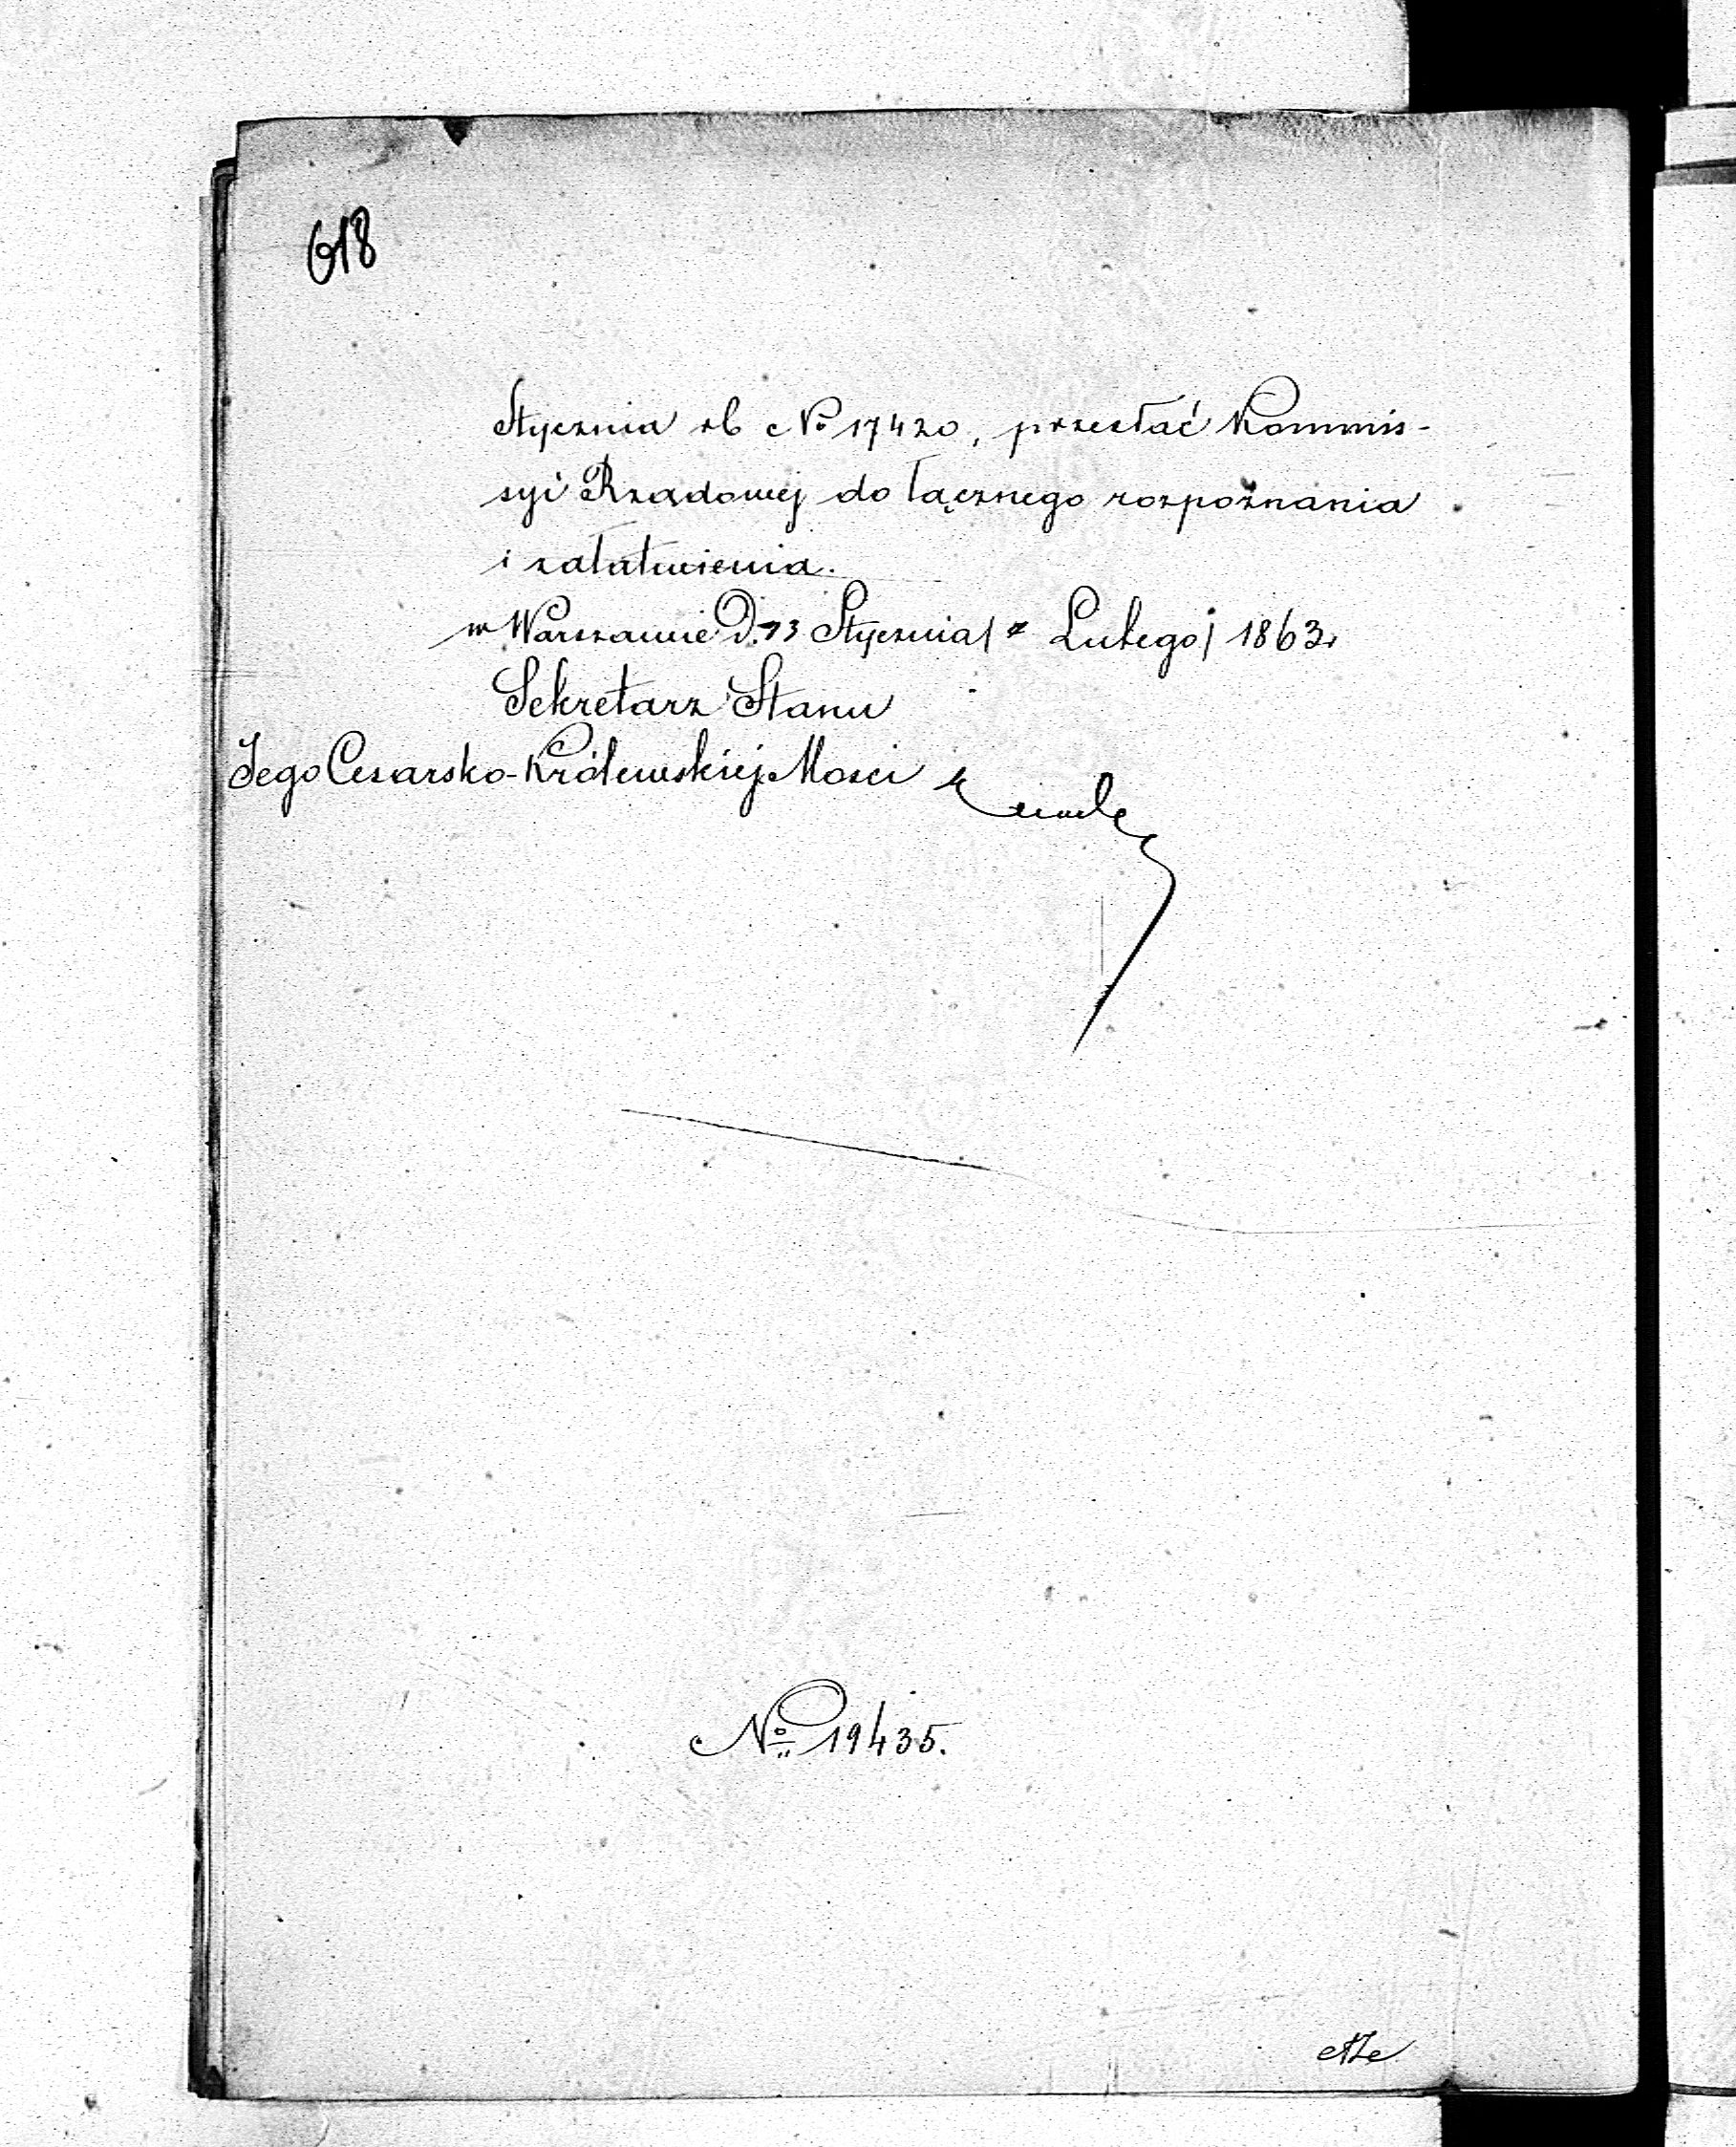 618
Stycznia rb No 17420, przesłać Kommis-
syi Rządowej do łącznego rozpoznania
i załatwienia.
w Warszawie D. 23 Stycznia / 4 Lutego / 1863r
Sekretarz Stanu
Jego Cesarsko-Królewskiej Mosci
No 19435.